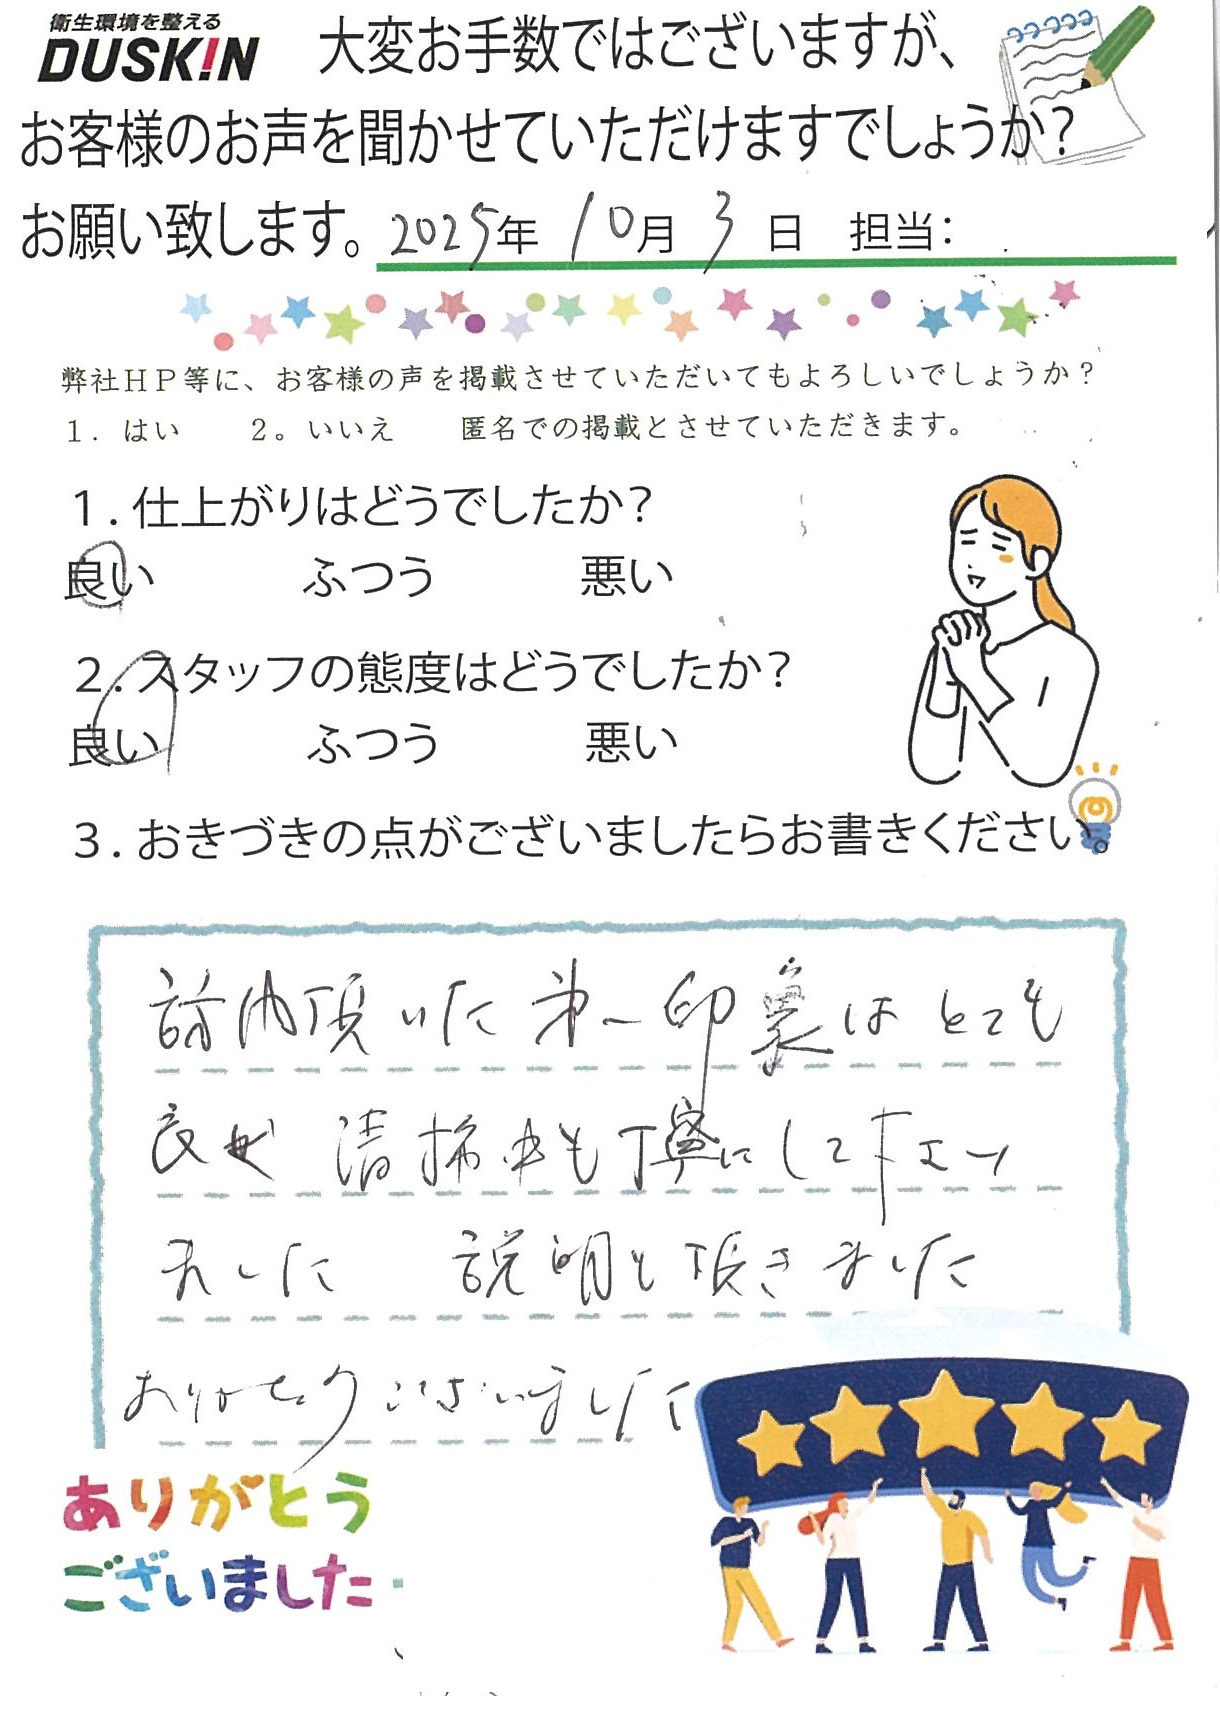 衛生環境を整える
DUSKIN
大変お手数ではございますが、
お客様のお声を聞かせていただけますでしょうか？
お願い致します。2025年 10月 3日 担当：
弊社ＨＰ等に、お客様の声を掲載させていただいてもよろしいでしょうか？
１．はい ２。いいえ 匿名での掲載とさせていただきます。
１．仕上がりはどうでしたか？
良い ふつう 悪い
２．スタッフの態度はどうでしたか？
良い ふつう 悪い
３．おきづきの点がございましたらお書きください。
頂いた 第一印象は とても
良く 清掃中も丁寧にして下さい
ました 説明も頂きました
ありがとうございました
ありがとう
ございました